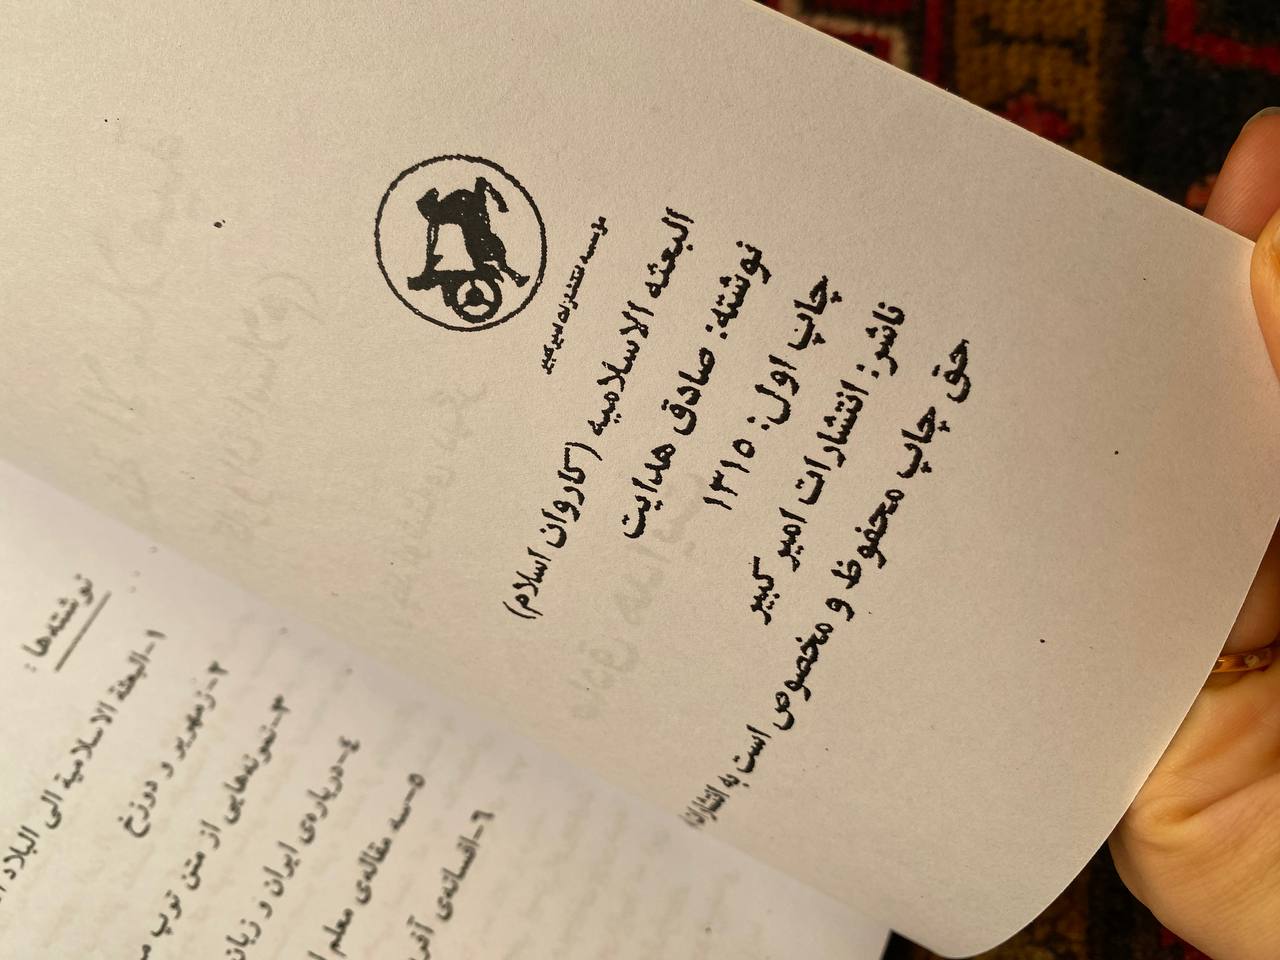 مؤسسه انتشارات امیرکبیر
البعثه الاسلامیه (کاروان اسلام)
نوشته: صادق هدایت
چاپ اول: ۱۳۱۵
ناشر: انتشارات امیر کبیر
حق چاپ محفوظ و مخصوص است به انتشارات
نوشته‌ها:
۱-البعثة الاسلامیة الی البلاد
۲-زمهریر و دوزخ
۳-نمونه‌هایی از متن توپ
٤-درباره‌ی ایران و زبان
۵-سه مقاله‌ی معلم
٦-افسانه‌ی